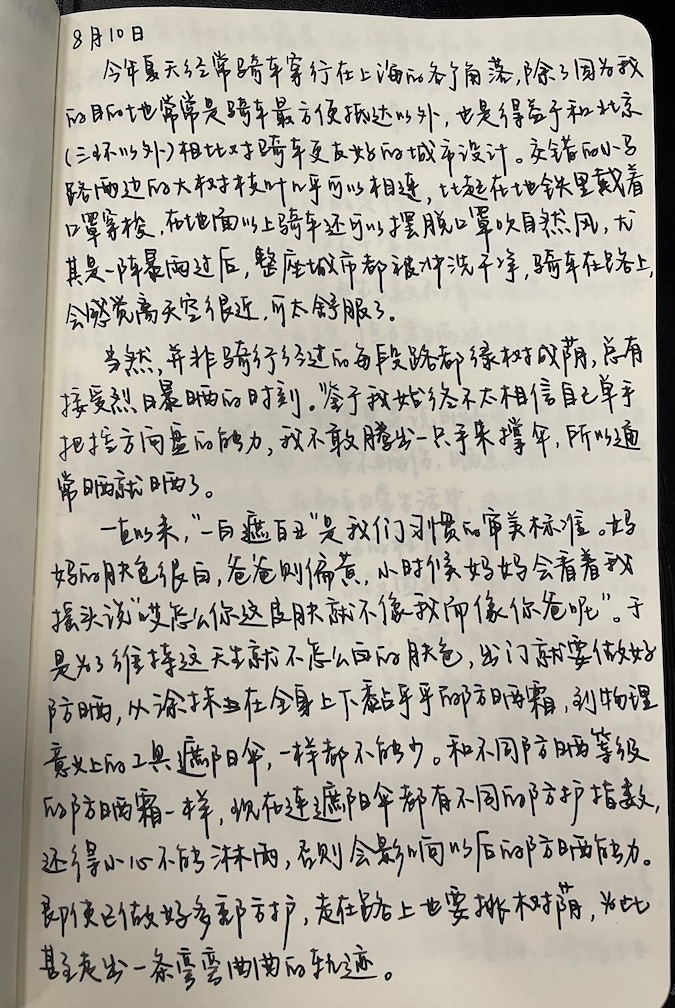 8月10日
今年夏天经常骑车穿行在上海的各个角落,除了因为我
的目的地常常是骑车最方便抵达以外,也是得益于和北京
(三环以外)相比对骑车更友好的城市设计。交错的小马
路两边的大树枝叶几乎可以相连,比起在地铁里戴着
口罩穿梭,在地面以上骑车还可以摆脱口罩吹自然风,尤
其是一阵暴雨过后,整座城市都被冲洗干净,骑车在路上,
会感觉离天空很近,可太舒服了。
当然,并非骑行经过的每段路都绿树成荫,总有
接受烈日暴晒的时刻。鉴于我始终不太相信自己单手
把控方向盘的能力,我不敢腾出一只手来撑伞,所以通
常晒就晒了。
一直以来,“一白遮百丑”是我们习惯的审美标准。妈
妈的肤色很白,爸爸则偏黄,小时候妈妈会看着我
摇头说“哎怎么你这皮肤就不像我而像你爸呢”。于
是为了维持这天生就不怎么白的肤色,出门就要做好
防晒,从涂抹在全身上下黏乎乎的防晒霜,到物理
意义上的工具遮阳伞,一样都不能少。和不同防晒等级
的防晒霜一样,现在连遮阳伞都有不同的防护指数,
还得小心不能淋雨,否则会影响以后的防晒能力。
即使已做好多部防护,走在路上也要挑树荫,为此
甚至走出一条弯弯曲曲的轨迹。